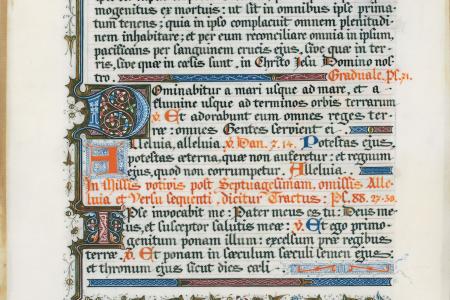 mogenitus ex mortuis: ut sit in omnibus ipse prima-
tum tenens; quia in ipso complacuit omnem plenitudi-
nem inhabitare; et per eum reconciliare omnia in ipsum,
pacificans per sanguinem crucis ejus, sive quæ in ter-
ris, sive quæ in cœlis sunt, in Christo Jesu Domino nos-
tro. Graduale. Ps. 71.
Dominabitur a mari usque ad mare, et a
flumine usque ad terminos orbis terrarum
℣. Et adorabunt eum omnes reges ter-
ræ: omnes Gentes servient ei
Alleluia, alleluia. ℣. Dan. 7. 14. Potestas ejus,
potestas æterna, quæ non auferetur: et regnum
ejus, quod non corrumpetur. Alleluia.
In Missis votivis post Septuagesimam, omissis Alle-
luia et Versu sequenti, dicitur Tractus: Ps. 88. 27-30.
Ipse invocabit me: Pater meus es tu: Deus me-
us, et susceptor salutis meæ: ℣. Et ego primo-
genitum ponam illum: excelsum præ regibus
terræ. ℣. Et ponam in sæculum sæculi semen ejus:
et thronum ejus sicut dies cœli.